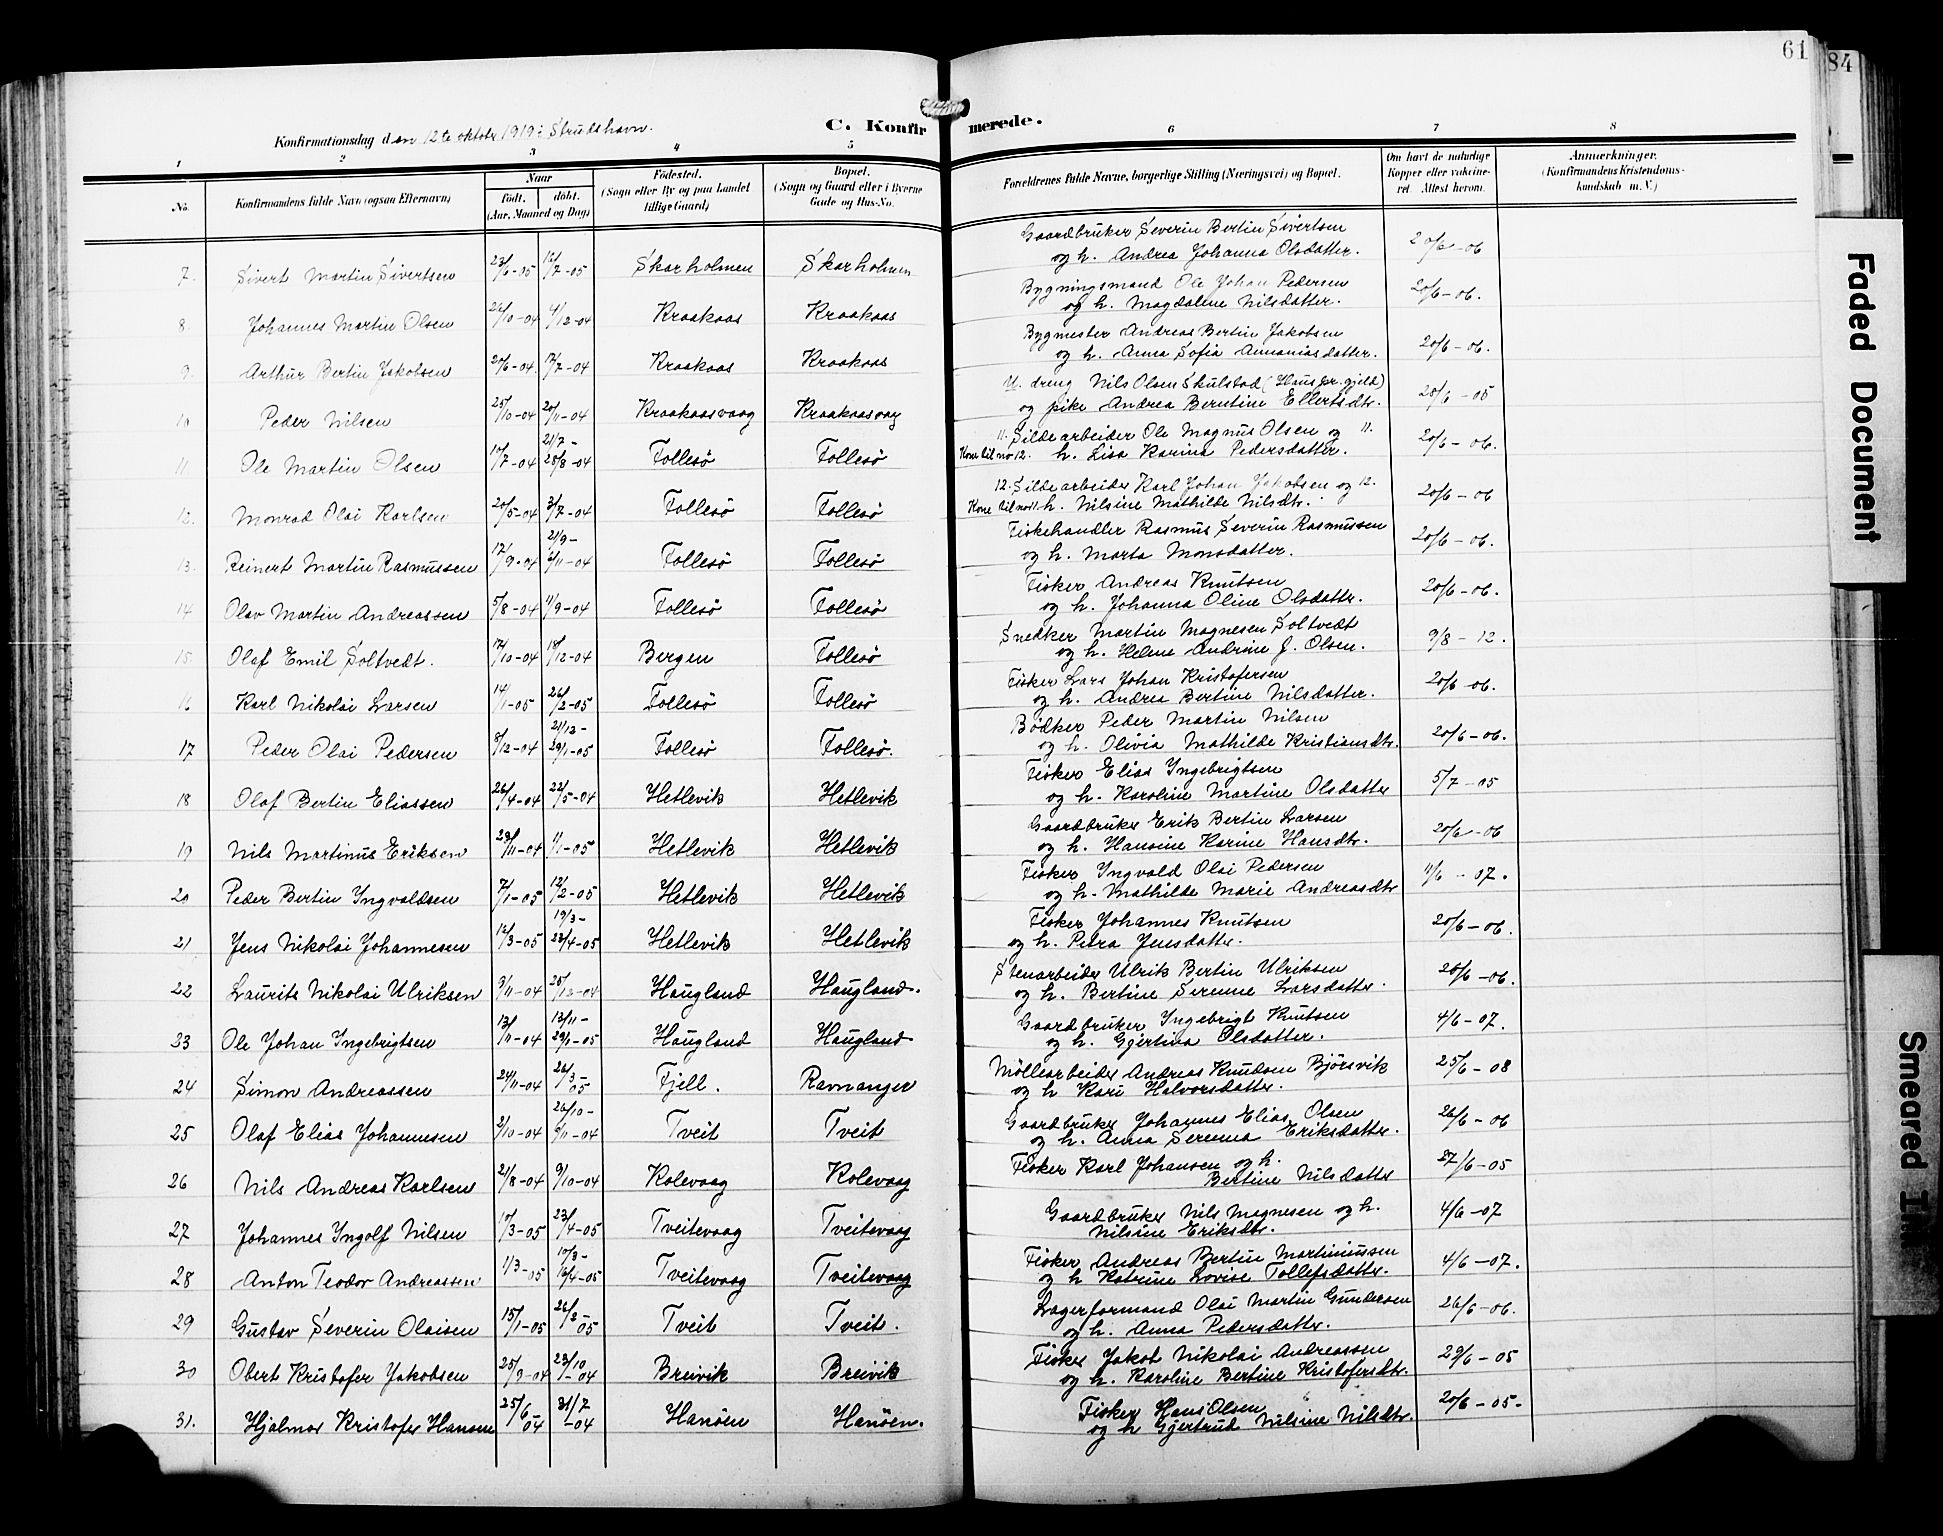 61
84
Faded Document
Smeared Ink
Konfirmationsdag den 12te oktobr 1919 i Strudshavn.
C. Konfirmerede.
1 2 3 4 5 6 7 8
No. Konfirmandens fulde Navn (ogsaa Efternavn) Naar født. døbt. (Aar, Maaned og Dag) Fødested. (Sogn eller By og paa Landet tillige Gaard) Bopæl. (Sogn og Gaard eller i Byerne Gade og Hus-No. Forældrenes fulde Navne, borgerlige Stilling (Næringsvei) og Bopæl. Om havt de naturlige Kopper eller vakcineret. Attest herom. Anmærkninger. (Konfirmandens Kristendomskundskab m. V.)
7. Sivert Martin Sivertsen 23/6-05 16/7-05 Skarholmen Skarholmen Gaardbruker Severin Bertin Sivertsen og h. Andrea Johanna Olsdatter. 20/6-06
8. Johannes Martin Olsen 26/10-04 4/12-04 Kraakaas Kraakaas Bygningsmand Ole Johan Pedersen og h. Magdalene Nilsdatter. 20/6-06.
9. Arthur Bertin Jakobsen 20/6-04. 17/7-04 Kraakaas Kraakaas Bygmester Andreas Bertin Jakobsen og h. Anna Sofia Annaniasdatter. 20/6-06.
10 Peder Nilsen 25/10-04 20/11-04 Kraakaasvaag Kraakaasvaag U. dreng Nils Olsen Skulstad (Haus pr.gjeld) og pike Andrea Berntine Ellertsdtr. 20/6-05
11. Ole Martin Olsen 10/7-04 21/7- 28/8-04 Follesø Follesø 11. Sildearbeider Ole Magnus Olsen og 11. Kone til no 12. h. Lisa Karina Pedersdatter. 20/6-06.
12. Monrad Olai Karlsen 20/5-04 3/7-04 Follesø Follesø 12. Sildearbeider Karl Johan Jakobsen og 12. Kone til no 11. h. Nilsine Mathilde Nilsdtr. 20/6-06
13. Reinert Martin Rasmussen 17/9-04 21/9- 6/11-04 Follesø Follesø Fiskehandler Rasmus Severin Rasmussen og h. Marta Monsdatter. 20/6-06.
14 Olav Martin Andreassen 5/8-04 11/9-04 Follesø Follesø Fisker Andreas Knutsen og h. Johanna Oline Olsdatter. 20/6-06.
15 Olaf Emil Soltvedt. 17/10-04 18/12-04 Bergen Follesø Snedker Martin Magnesen Soltvedt og h. Helene Andrine J. Olsen. 9/8-12.
16 Karl Nikolai Larsen 14/1-05 26/2-05 Follesø Follesø Fisker Lars Johan Kristofersen og h. Andrea Bertine Nilsdatter. 20/6-06.
17 Peder Olai Pedersen 8/12-04 21/12- 29/1-05 Follesø Follesø. Bødker Peder Martin Nilsen og h. Olivia Mathilde Kristiansdtr. 20/6-06.
18 Olaf Bertin Eliassen 26/4-04 22/5-04 Hetlevik Hetlevik Fisker Elias Ingebrigtsen og h. Karoline Martine Olsdatter 5/7-05
19 Nils Martinus Eriksen 29/11-04 1/1-05 Hetlevik Hetlevik Gaardbruker Erik Bertin Larsen og h. Hansine Karine Hansdtr. 20/6-06
20 Peder Bertin Ingvaldsen 7/1-05 12/2-05 Hetlevik Hetlevik Fisker Ingvald Olai Pedersen og h. Mathilde Marie Andreasdtr 11/6-07.
21 Jens Nikolai Johannesen 12/3-05 19/3- 23/4-05 Hetlevik Hetlevik Fisker Johannes Knutsen og h. Petra Jensdatter. 20/6-06.
22 Laurits Nikolai Ulriksen 9/11-04 26/12-04 Haugland Haugland. Stenarbeider Ulrik Bertin Ulriksen og h. Bertine Serenne Larsdatter. 20/6-06.
23 Ole Johan Ingebrigtsen 13/11-04 13/11- 29/1-05 Haugland Haugland Gaardbruker Ingebrigt Knutsen og h. Gjertina Olsdatter. 4/6-07.
24 Simon Andreassen 24/11-04 26/3-05 Fjell. Ravnanger Møllearbeider Andreas Knudsen Bjørsvik og h Kari Halvorsdatter. 25/6-08
25 Olaf Elias Johannesen 2/10-04 26/10- 6/11-04 Tveit Tveit Gaardbruker Johannes Elias Olsen og h. Anna Serenna Eriksdatter. 26/6-06
26 Nils Andreas Karlsen 21/8-04 9/10-04 Kolevaag Kolevaag Fisker Karl Johansen og h. Bertine Nilsdatter 27/6-05
27 Johannes Ingolf Nilsen 17/3-05 23/4-05 Tveitevaag Tveitevaag Gaardbruker Nils Magnesen og h. Nilsine Eriksdtr. 4/6-07
28 Anton Teodor Andreassen 1/3-05 10/3- 16/4-05 Tveitevaag Tveitevaag Fisker Andreas Bertin Martiniussen og h Katrine Lovise Tollefsdatter. 4/6-07.
29 Gustav Severin Olaisen 15/1-05 26/2-05 Tveit Tveit. Lagerformand Olai Martin Gundersen og h. Anna Pedersdatter. 26/6-06.
30 Obert Kristofer Jakobsen 25/9-04 23/10-04 Breivik Breivik Fisker Jakob Nikolai Andreassen og h. Karoline Bertine Kristofersdtr. 29/6-05
31. Hjalmar Kristofer Hansen 25/6-04 31/7-04 Hanøen Hanøen. Fisker Hans Olsen og h Gjertrud Nilsine Nilsdtr. 20/6-05-